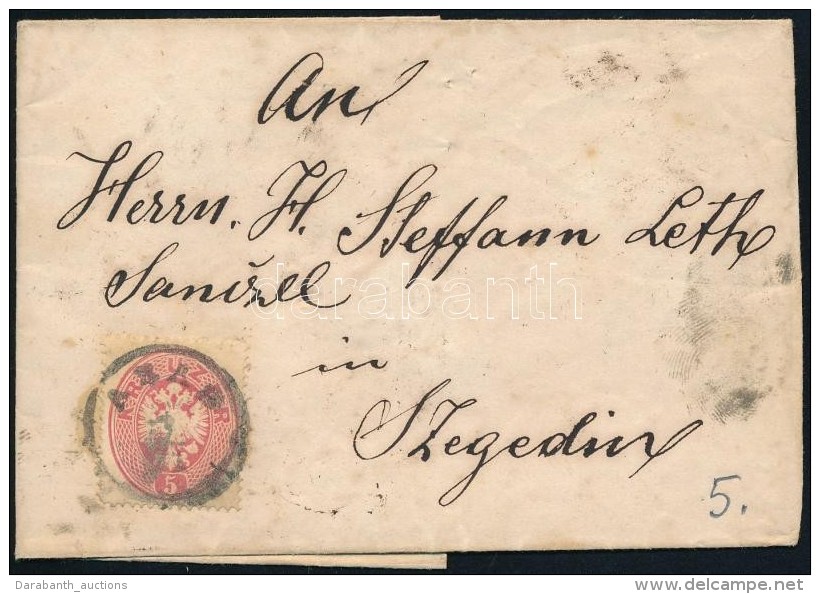 An
Herrn. H. Steffann Leth
in
Szegedin
5.
KREUZER
5
darabanth
Darabanth_auctions
http://www.delcampe.net